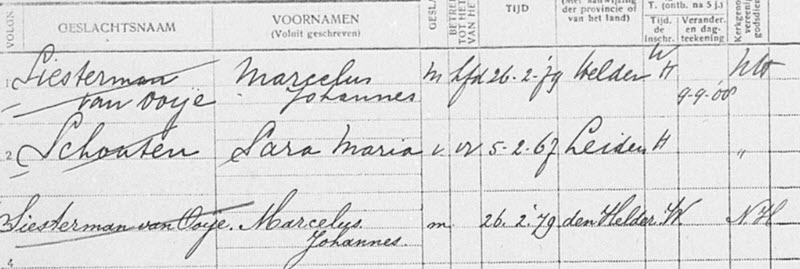 VOLGN.
GESLACHTSNAAM
VOORNAMEN
(Voluit geschreven)
GESL
BETRE
TOT HET
VAN HET
TIJD
der provincie of
van het land)
T. (ontb. na 5 j.)
Tijd.
de
inschr.
Verander.
en dag-
teekening
Kerkgeno
vereenig
godsdien
1 Siesterman Marcelus m hfd 26-2-'79 Helder W H NH
van Ooije Johannes 9-9-'08
2 Schouten Sara Maria v. vr 5-2-67 Leiden H "
3 Siesterman van Ooije. Marcelus m. 26.2.'79 den Helder. W N.H
Johannes.
4